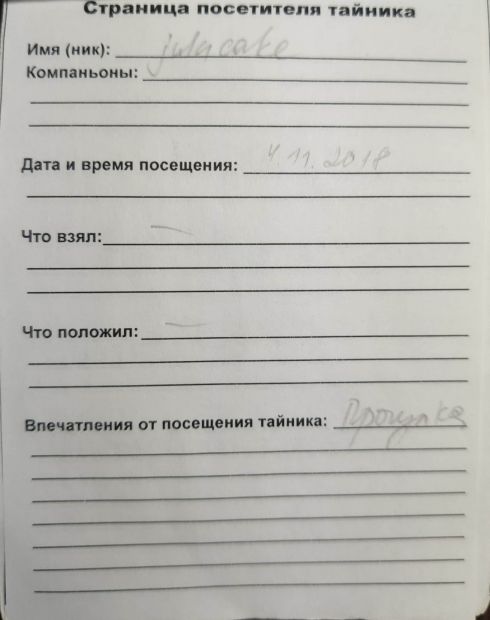 Страница посетителя тайника
Имя (ник): julacake
Компаньоны:
Дата и время посещения: 4.11.2018
Что взял: —
Что положил: —
Впечатления от посещения тайника: Прогулка